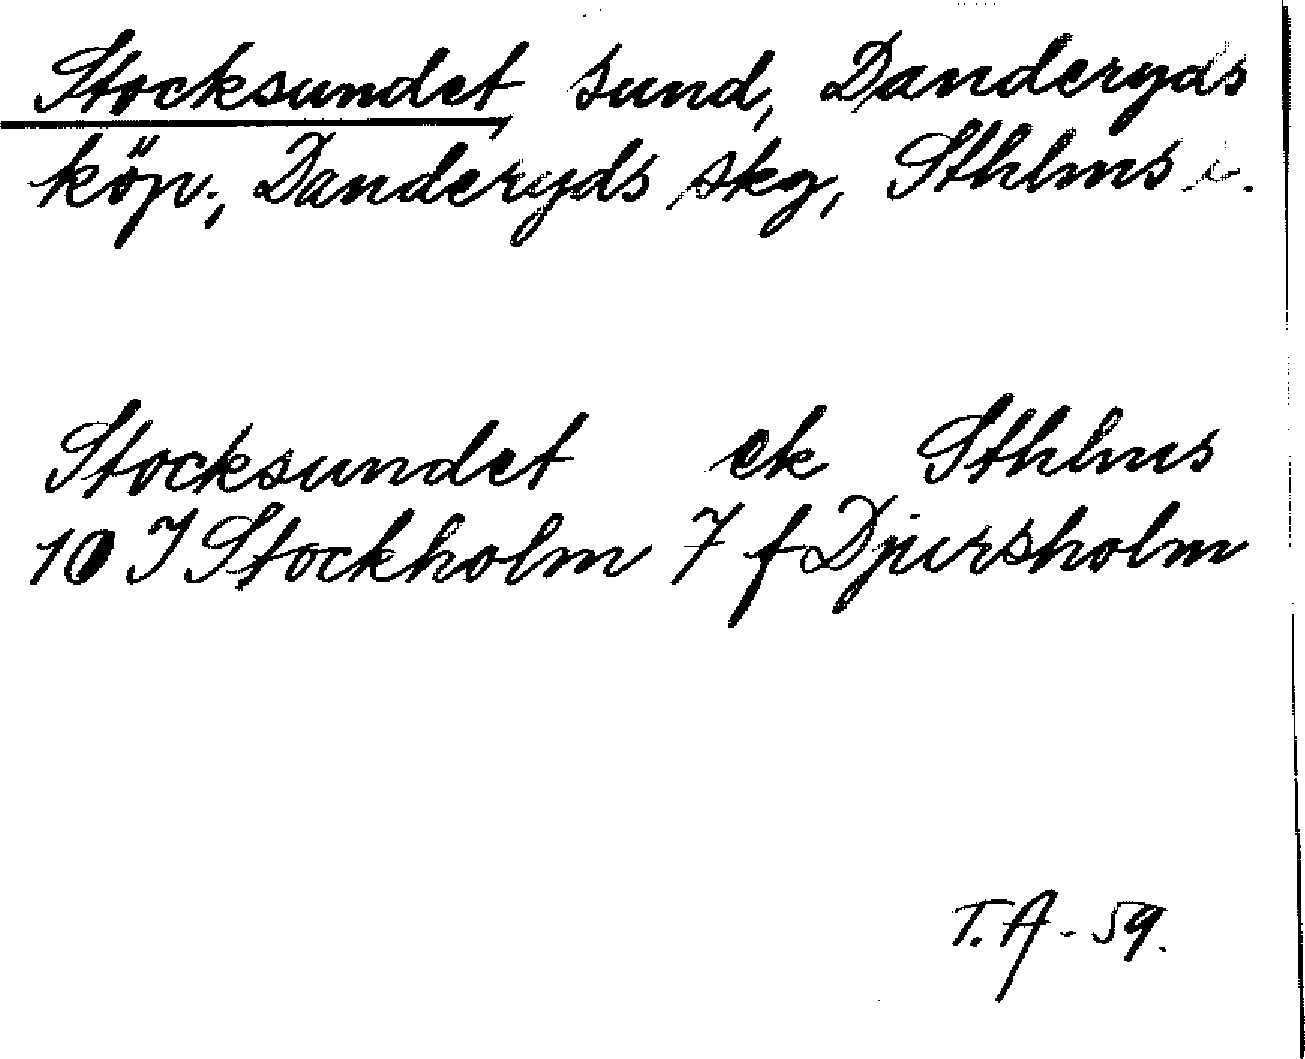 Stocksundet sund, Danderyds
köp., Danderyds skg, Sthlms l.
Stocksundet ek Sthlms
10 I Stockholm 7 f Djursholm
T.A - 59.